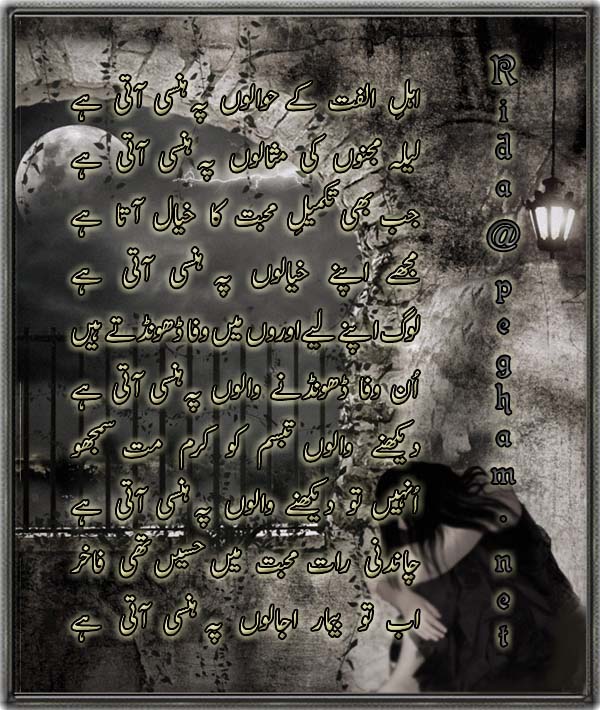 اہلِ الفت کے حوالوں پہ ہنسی آتی ہے
لیلہ مجنوں کی مثالوں پہ ہنسی آتی ہے
جب بھی تکمیلِ محبت کا خیال آتا ہے
مجھے اپنے خیالوں پہ ہنسی آتی ہے
لوگ اپنے لیے اوروں میں وفا ڈھونڈتے ہیں
اُن وفا ڈھونڈنے والوں پہ ہنسی آتی ہے
دیکھنے والوں تبسم کو کرم مت سمجھو
اُنہیں تو دیکھنے والوں پہ ہنسی آتی ہے
چاندنی رات محبت میں حسیں تھی فاخر
اب تو بیمار اجالوں پہ ہنسی آتی ہے
Rida@pegham.net